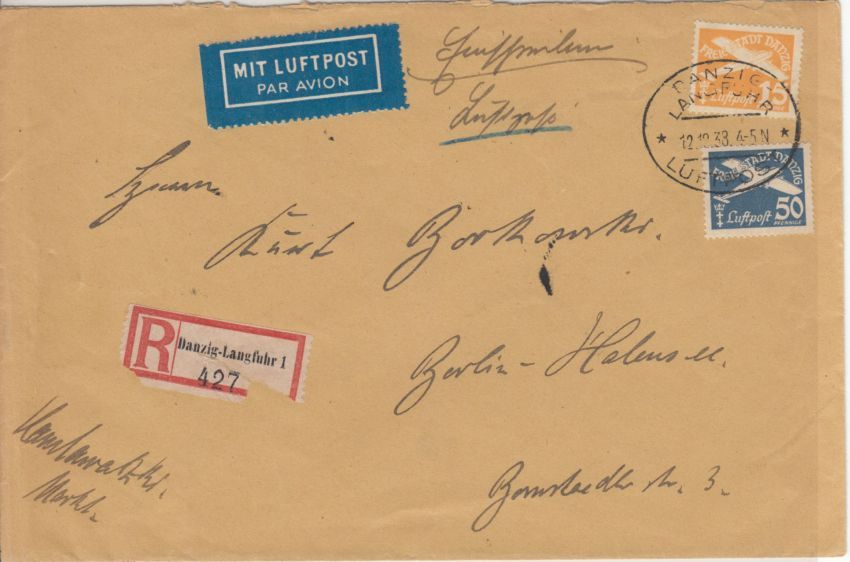 MIT LUFTPOST
PAR AVION
Einschreiben
Luftpost
FREIE STADT DANZIG
Luftpost 15
DANZIG
LANGFUHR
* 12.10.38. 4-5 N. *
LUFTPOST
FREIE STADT DANZIG
Luftpost 50
PFENNIGE
Herrn
Kurt Borkowski.
R Danzig-Langfuhr 1
427
Berlin-Halensee.
Bornstedter str. 3.